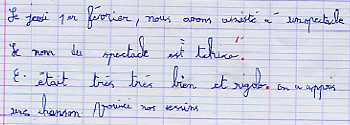 Le jeudi 1er février, nous avons assisté à un spectacle
Le nom du spectacle est
C'était très très bien et rigolo. on a appris
une chanson nos